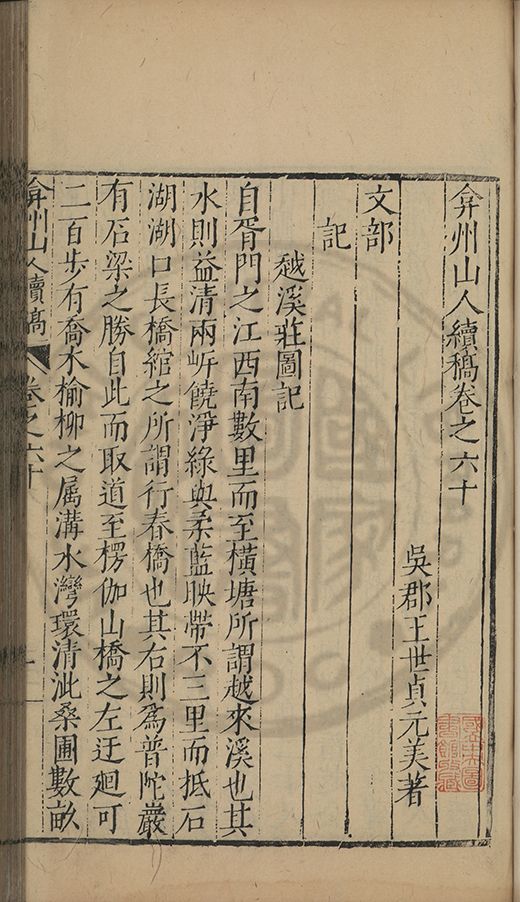 弇州山人續稿卷之六十
吳郡王世貞元美著
文部
記
越溪莊圖記
自胥門之江西南數里而至橫塘所謂越來溪也其
水則益清兩岍饒淨綠與柔藍映帶不三里而抵石
湖湖口長橋綰之所謂行春橋也其右則為普陀巖
有石梁之勝自此而取道至楞伽山橋之左迂廻可
二百步有喬木榆柳之属溝水灣環清泚桑圃數畝
弇州山人續稿
卷之六十
一
國立中央圖書館收藏